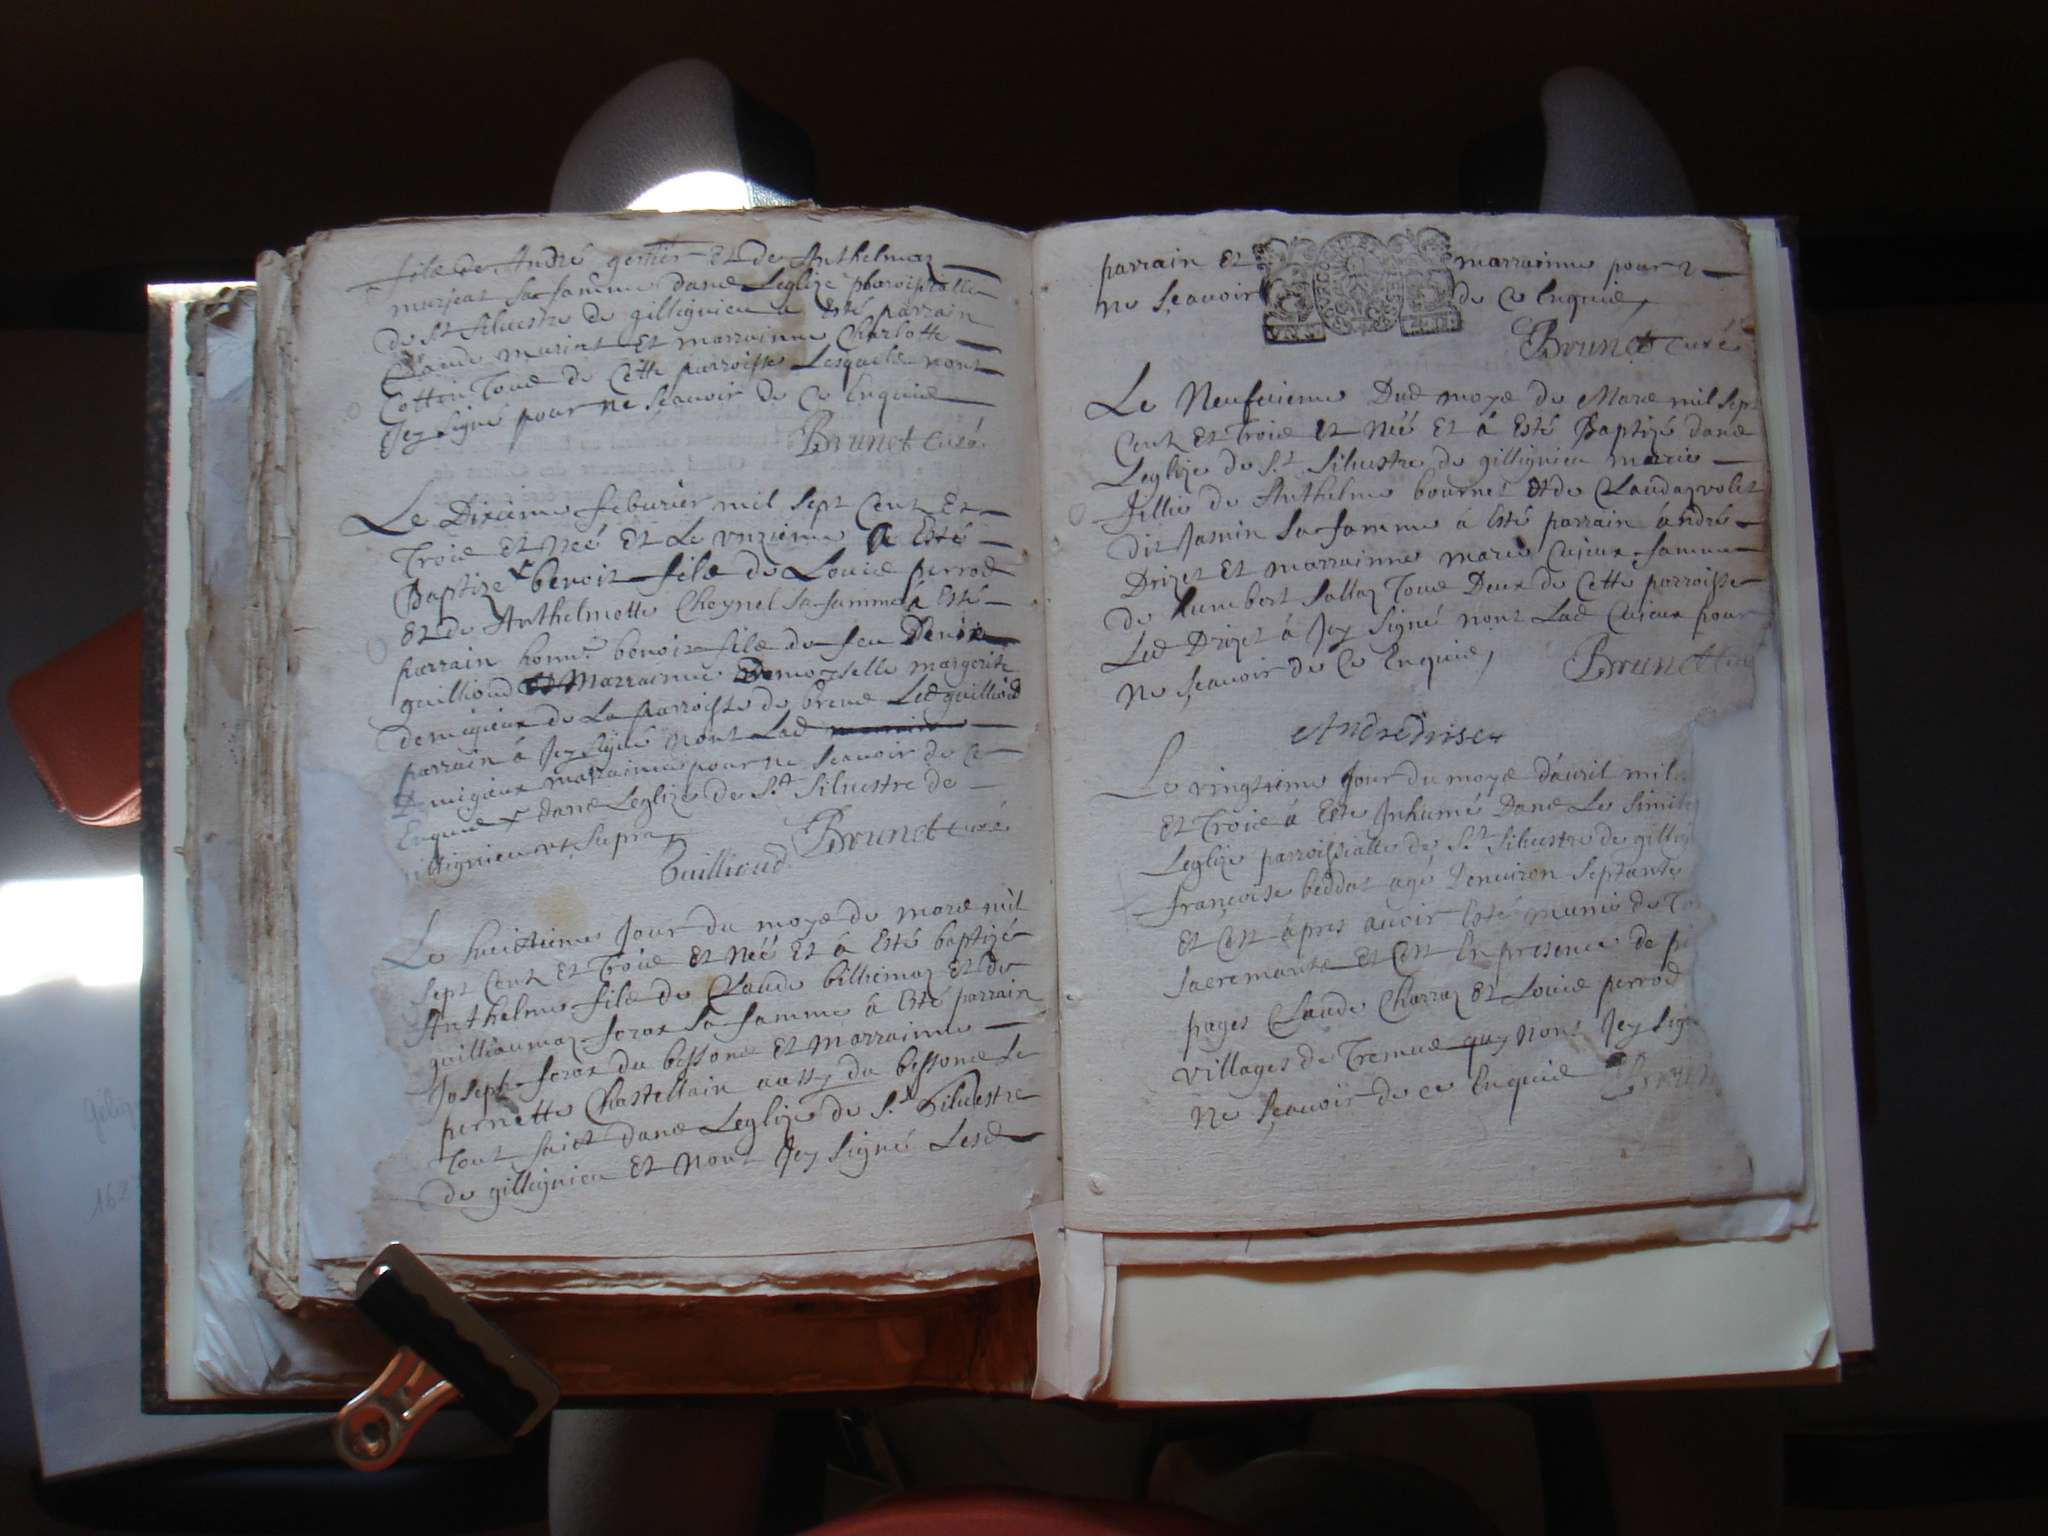 fils de André gestier Et de Anthelmaz
murjeat sa famme dans Leglize paroissialle
de St Siluestre de gillignieu a Esté parrain
Claude muriat Et marrainne Charlotte
Cottin Tous de Cette parroisse Lesquels nont
Jcy signé pour ne scauoir de Ce Enquis
Brunet curé
Le Dixieme feburier mil sept Cent Et
Trois Et néé Et Le vnzieme a Esté
Baptizé benoit fils de Louis perrod
Et de Anthelmette Cheynel sa famme a Esté
parrain honn. benoit fils de feu Denis
guillioud Marrainne Demoyselle margerite
demigieux de La parroisse de brens Led guilliod
parrain á Jcy signé nont Lad
Demigieux marrainne pour ne scauoir de Ce
Enquis dans Leglize de St Siluestre de
illignieu vt supra
Brunet curé
Guillioud
Le huictieme Jour du moys de mars mil
sept Cent Et Trois Et néé Et á Esté baptizé
Anthelme fils de Claude billiemaz Et de
guilliaumaz forax sa famme á Esté parrain
Joseph forax du bessone Et marrainne
pernette Chastellain aussy du bessone Le
Tout faict dans Leglize de St Siluestre
de gillignieu Et nont Jcy signé Lesd
parrain Et marrainne pour
ne sçauoir de Ce Enquis
Brunet curé
Le Neufuieme Dud moys de Mars mil sept
Cent Et Trois Et néé Et á Esté Baptizé dans
Leglize de St Siluestre de gillignieu marie
fillie de Anthelme bournet Et de Claudaz volet
dit Jamin sa famme á Esté parrain ándré
Drizet Et marrainne marie Cujeux famme
de humbert sallaz Tous Deux de Cette parroisse
Led Drizet á Jcy signé nont Lad Cujeux pour
ne sçauoir de Ce Enquis
Brunet
André driset
Le vingtieme Jour du moys d'auril mil
Et Trois á Esté Jnhumé Dans Le simit
Leglize parroissialle de St Siluestre de gillig
françoise beddat agé Denuiron septante
Et Cest ápres auoir Esté munie de To
sacremants Et Cest En presence de pi
pages Claude Charraz Et Louis perrod
villages de Tremus quy nont Jcy sig
ne sçauoir de ce Enquis Brunet